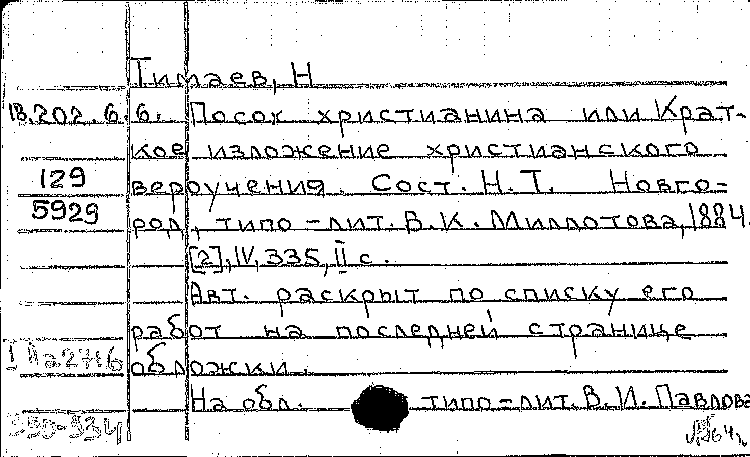 Тимаев, Н
18.202.6.6. Посох христианина или Крат-
кое изложение христианского
129 вероучения. Сост. Н. Т. Новго-
5929 род, типо-лит. В. К. Миллотова, 1884.
[2], IV, 335, II с.
Авт. раскрыт по списку его
работ на последней странице
обложки.
На обл. типо-лит. В. И. Павлова